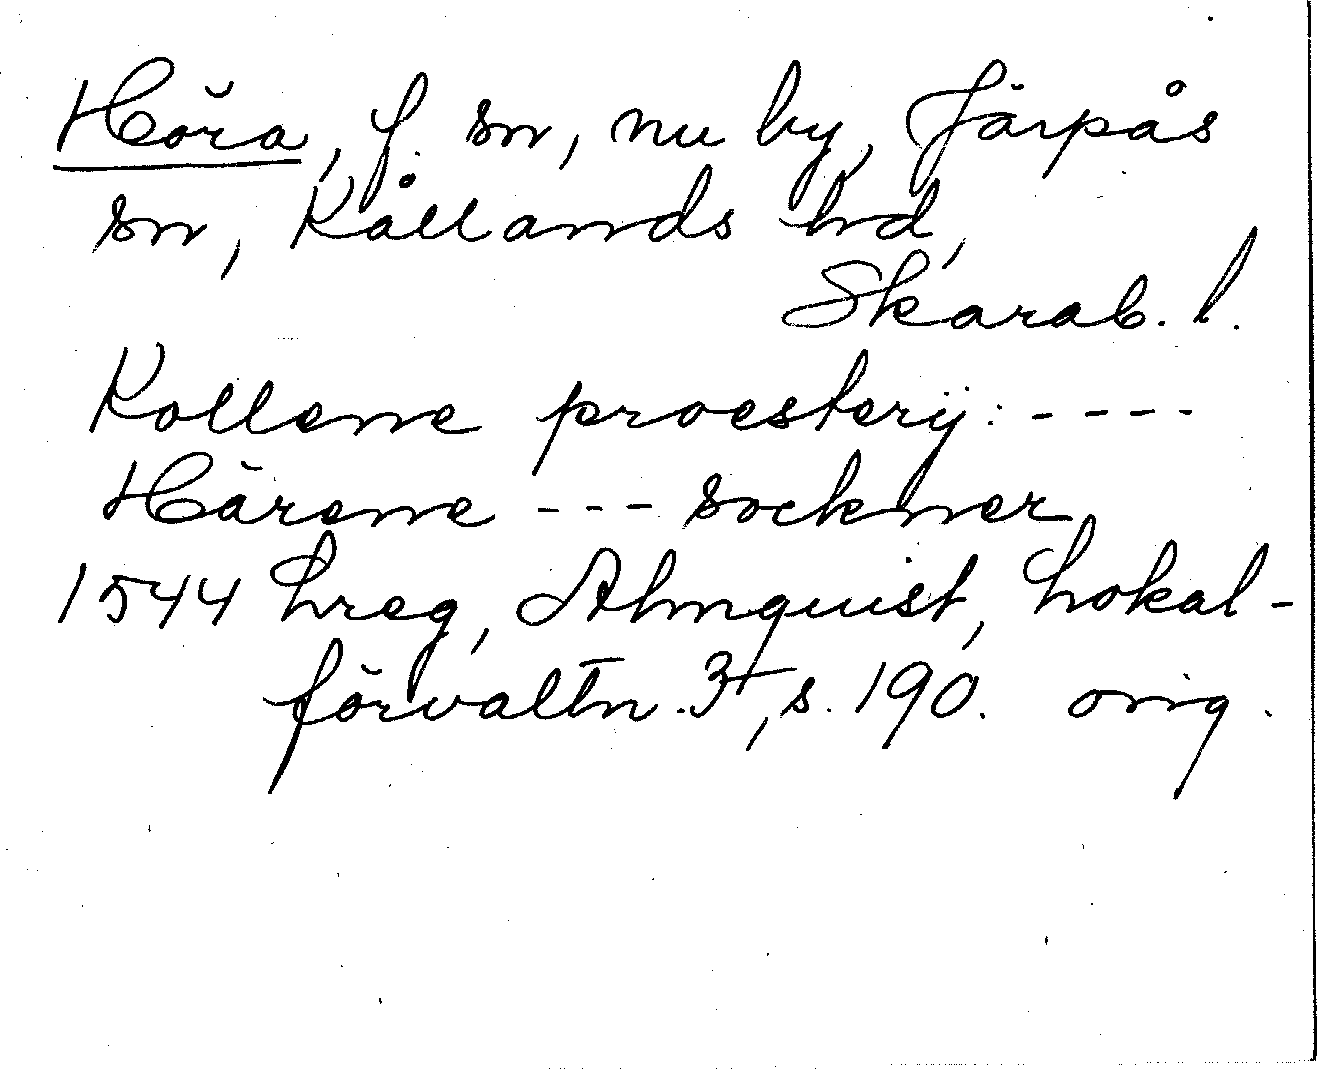 Höra, f. sn, nu by, Järpås
sn, Kållands hd,
Skarab. l.
Kollene proesterij: ----
Härene --- sockner
1544 hreg, Almquist, Lokal-
förvaltn. 3, s. 190. orig.